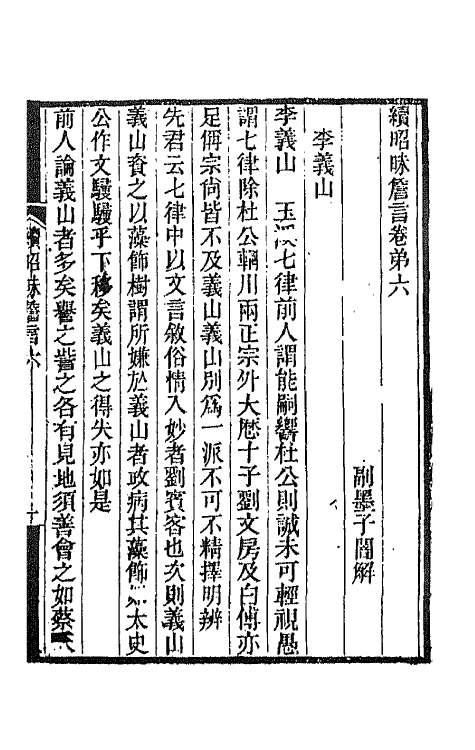 續昭昧詹言卷弟六
副墨子闇解
李義山
李義山　玉溪七律前人謂能嗣響杜公則誠未可輕視愚
謂七律除杜公輞川兩正宗外大厯十子劉文房及白傅亦
足俩宗尙皆不及義山義山別爲一派不可不精擇明辨
先君云七律中以文言敘俗情入妙者劉賓客也次則義山
義山資之以藻飾樹謂所嫌於義山者政病其藻飾如太史
公作文駸駸乎下移矣義山之得失亦如是
前人論義山者多矣譽之訾之各有見地須善會之如蔡
續昭昧詹言六